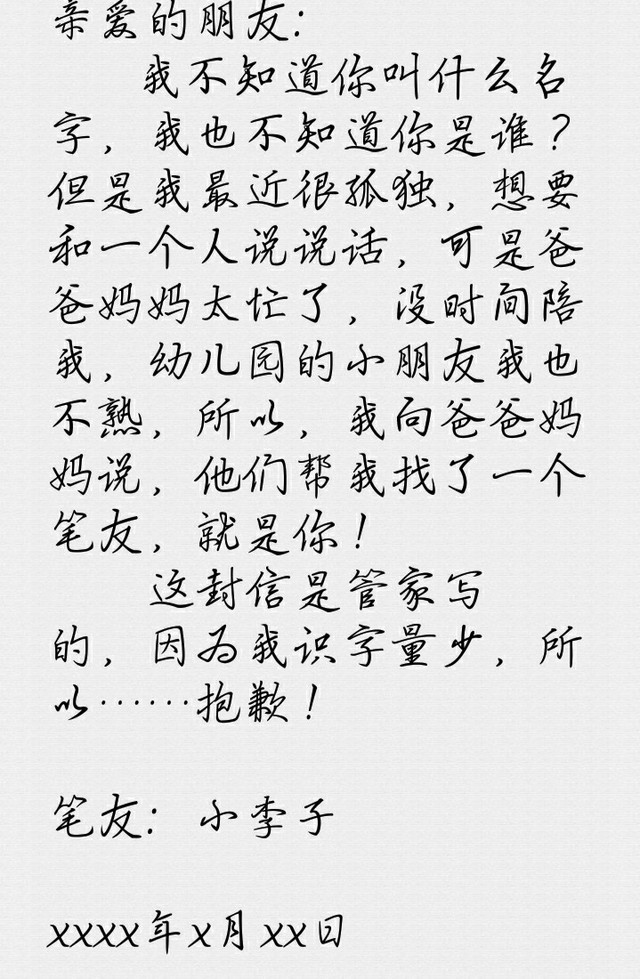 亲爱的朋友：
我不知道你叫什么名
字，我也不知道你是谁？
但是我最近很孤独，想要
和一个人说说话，可是爸
爸妈妈太忙了，没时间陪
我，幼儿园的小朋友我也
不熟，所以，我向爸爸妈
妈说，他们帮我找了一个
笔友，就是你！
这封信是管家写
的，因为我识字量少，所
以……抱歉！
笔友：小李子
xxxx年x月xx日